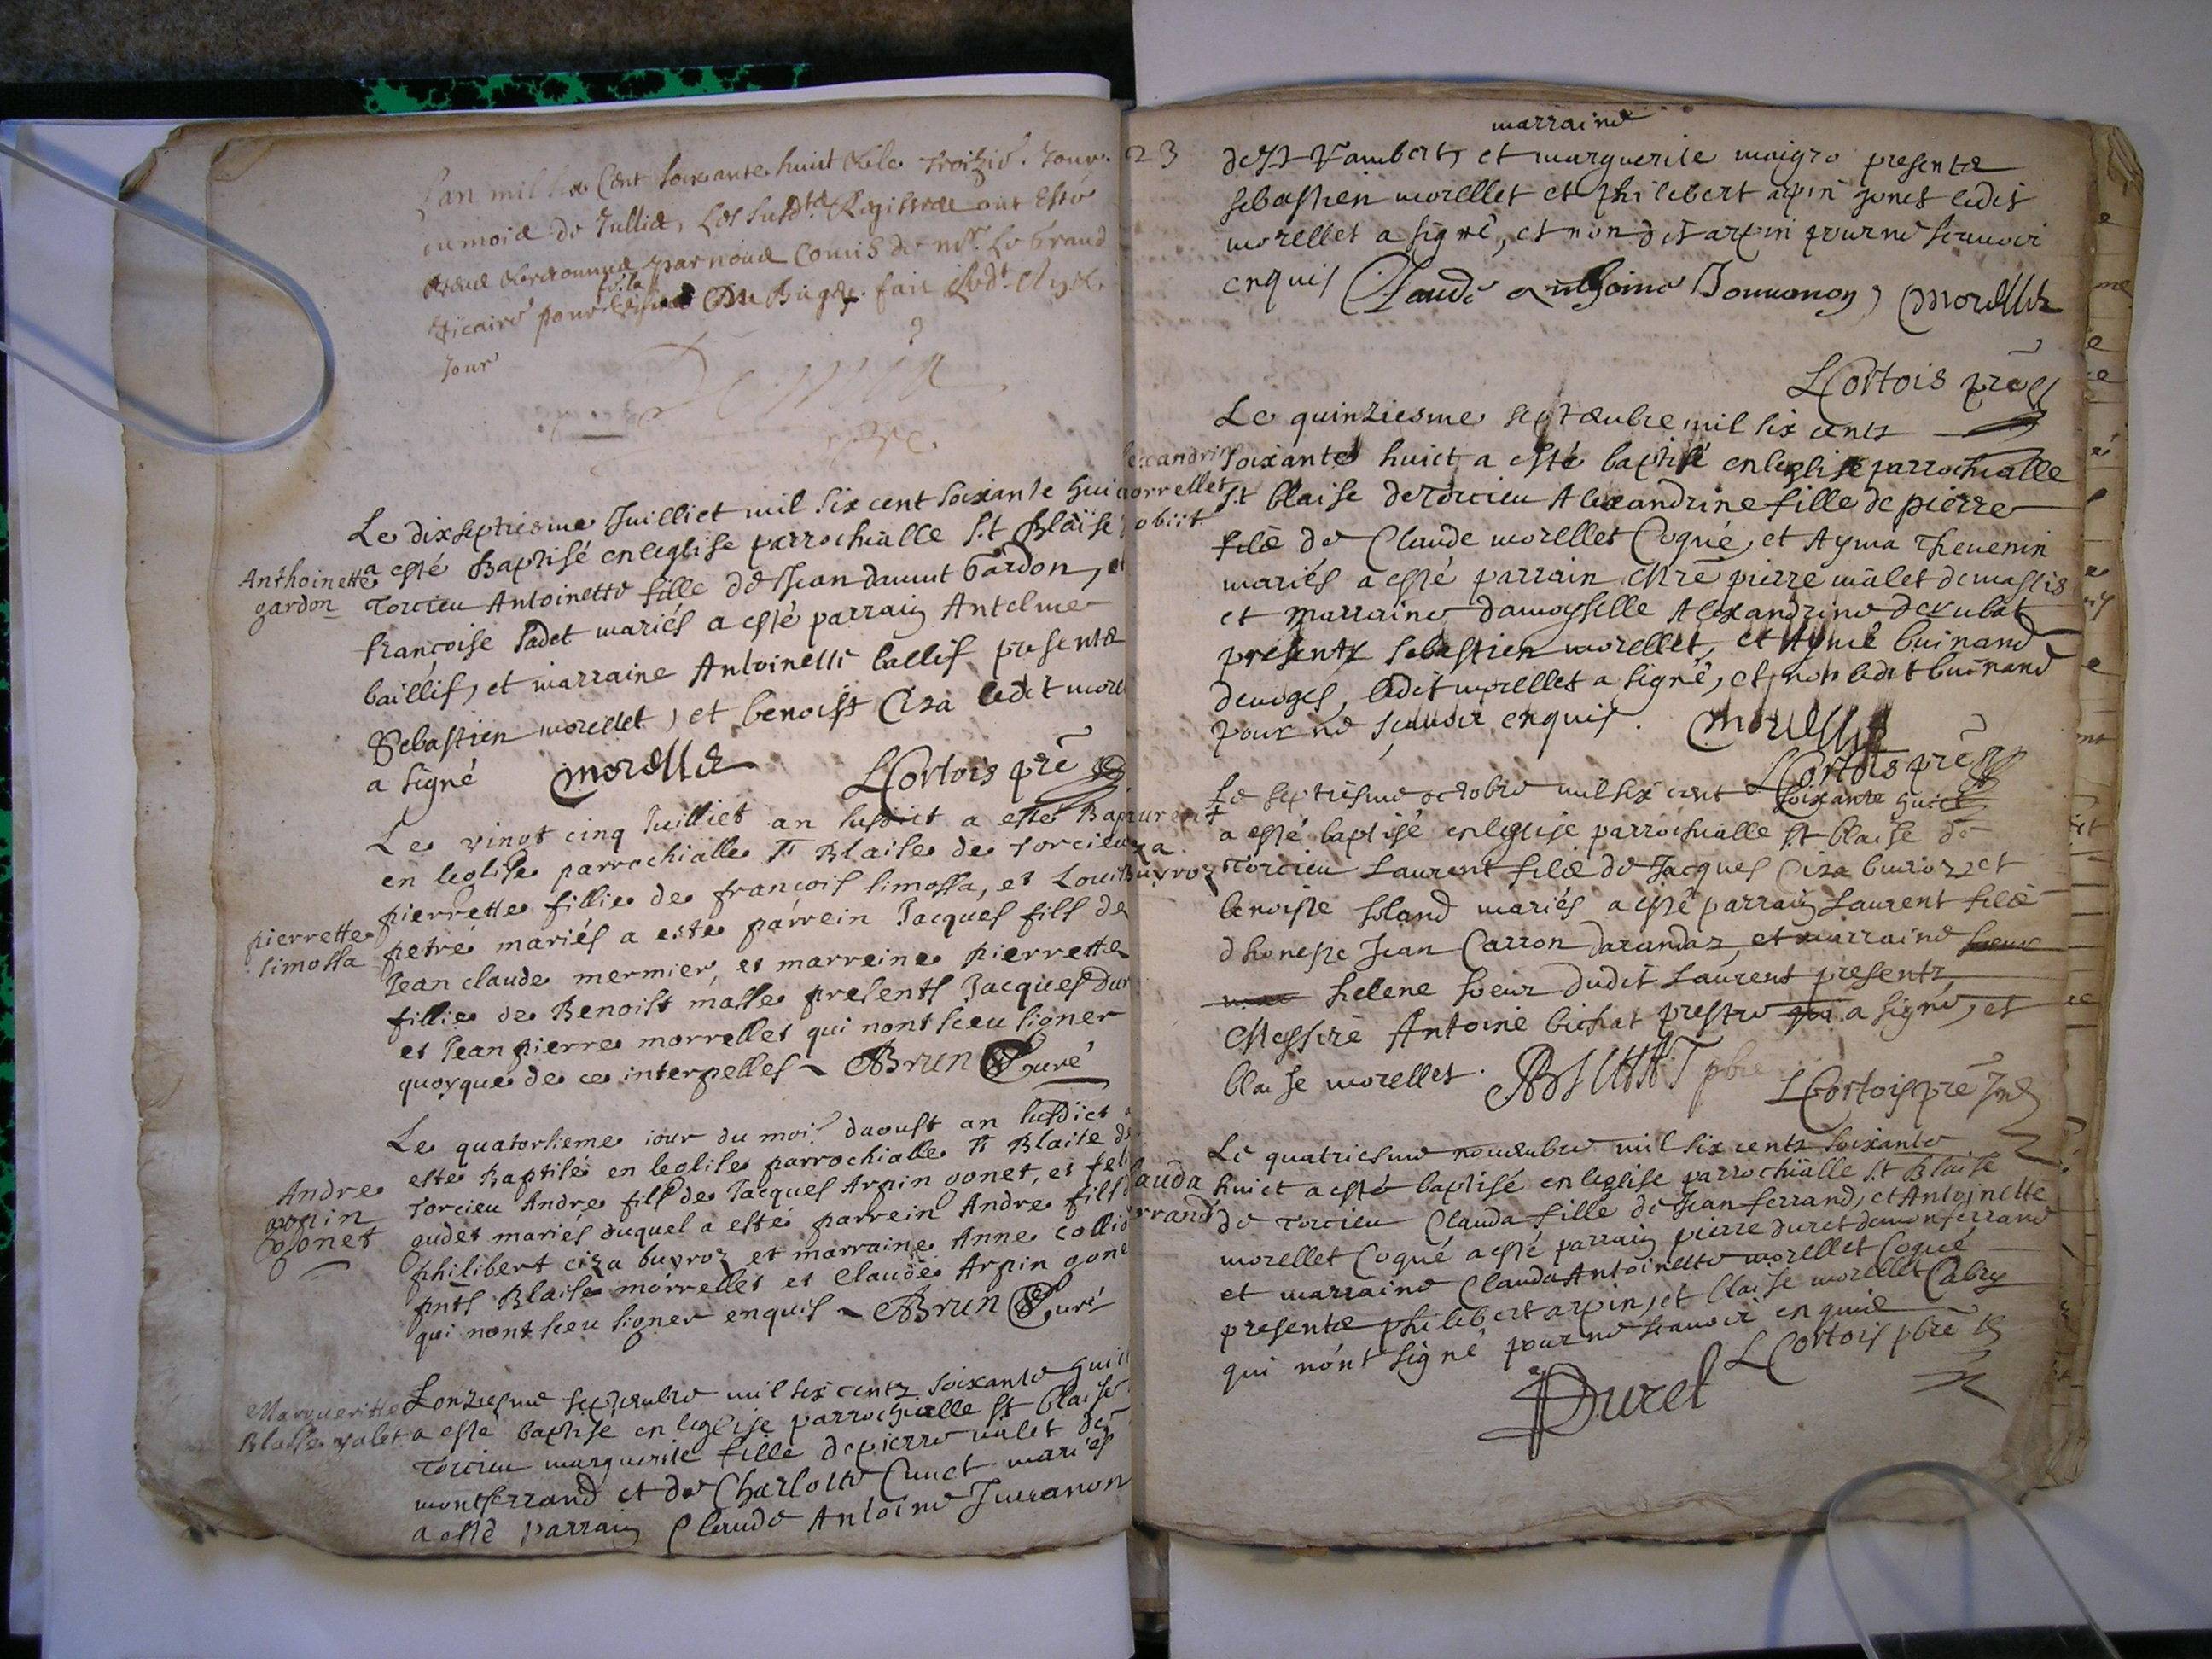 Lan mil six Cent soixante huict & le troizie. Jour
du moid de Jullid, Les susdtes Registred ont Esté
par noud Comis de Mr. Le Grand
Vicaire pour du Bugey. fait led.t
Jour
Le dixseptiesme Juilliet mil six cent soixante hui
a esté Baptisé en leglise parrochialle S.t Blaise
Anthoinette
gardon
Torcieu Antoinette fille de Jean gardon, et
françoise Padet mariés a esté parrain Antelme
baillif, et marraine Antoinette ballif presentz
Sebastien morellet, et benoist Ciza ledit more
a signé morellet LCortois pre
Le vingt cinq Juilliet an susdict a esté Bap
en leglise parrochialle St Blaise de torcieu
pierrette
simossa
pierrette fillie de françois simossa, et Loui
petre mariés a este parrein Jacques fils de
Jean claude mermier, et marreine pierrette
fillie de Benoist masse presents Jacques Dur
et Jean pierre morrellet qui nont sceu signer
quoyque de ce interpelles ~ Brun Curé
Le quatorsieme iour du mois daoust an susdict a
esté Baptisé en leglise parrochialle St Blaise de
Andre
arpin
gonet
Torcieu Andre fils de Jacques Arpin gonet, et
gudet mariés duquel a esté parrein Andre fils
philibert ciza buyroz et marraine Anne collio
pnts Blaise morrellet et Claude Arpin gone
qui nont sceu signer enquis ~ Brun Curé
Margueritte
valet
Lonziesme septembre mil six centz soixante huic
a esté baptisé en leglise parrochialle st blaise
Torcieu marguerite fille de pierre valet de
montferrand et de Charlotte Cunet mariés
a esté parrain Claude Antoine Juuanon
23
marraine
de St Rambert, et marguerite maigro presentz
sebastien morellet et philibert arpin gonet ledit
morellet a signé, et non dit arpin pour ne scauoir
enquis Claude anthoine Jouuanon, morellet
LCortois pre
Le quinziesme septembre mil six centz
exandrin
orrellet
obiit
soixante huict a esté baptisé en leglise parrochialle
st blaise de Torcieu Alexandrine fille de pierre
filz de Claude morellet Coqué, et Ayma Thevenin
mariés a esté parrain pierre malet
et marraine damoyselle Alexandrine
presentz sebastien morellet, et Aymé buinand
ledit morellet a signé, et non ledit buinand
pour ne scauoir enquis. morellet
LCortois pre
Le septiesme octobre mil six cent soixante huict
a esté baptisé en leglise parrochialle st blaise de
urent
za
buyroz
Torcieu Laurent filz de Jacques Ciza buiroz et
benoiste soland mariés a esté parrain Laurent filz
dhoneste Jean Carron darandaz, et marraine
helene soeur dudit Laurent presentz
Messire Antoine bichat prestre a signé, et
blaise morellet. ABICHAT pbre LCortois pre
Le quatriesme nouembre mil six centz soixante
auda
rrand
huict a esté baptisé en leglise parrochialle st Blaise
de Torcieu Clauda fille de Jean ferrand, et Antoinette
morellet Coqué a esté parrain pierre duret de monferrand
et marraine Clauda Antoinette morellet Coqué
presentz philibert arpin, et blaise morellet Cabry
qui n'ont signé pour ne scauoir enquis
LCortois pbre
PDuret